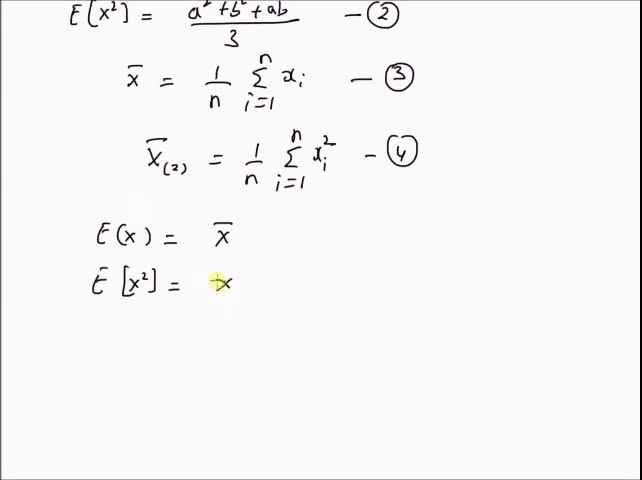 E[x²] = a² + b² + ab / 3 — ②
x̄ = 1/n Σ_{i=1}^{n} xᵢ — ③
x̄₍₂₎ = 1/n Σ_{i=1}^{n} xᵢ² — ④
E(x) = x̄
E[x²] = x